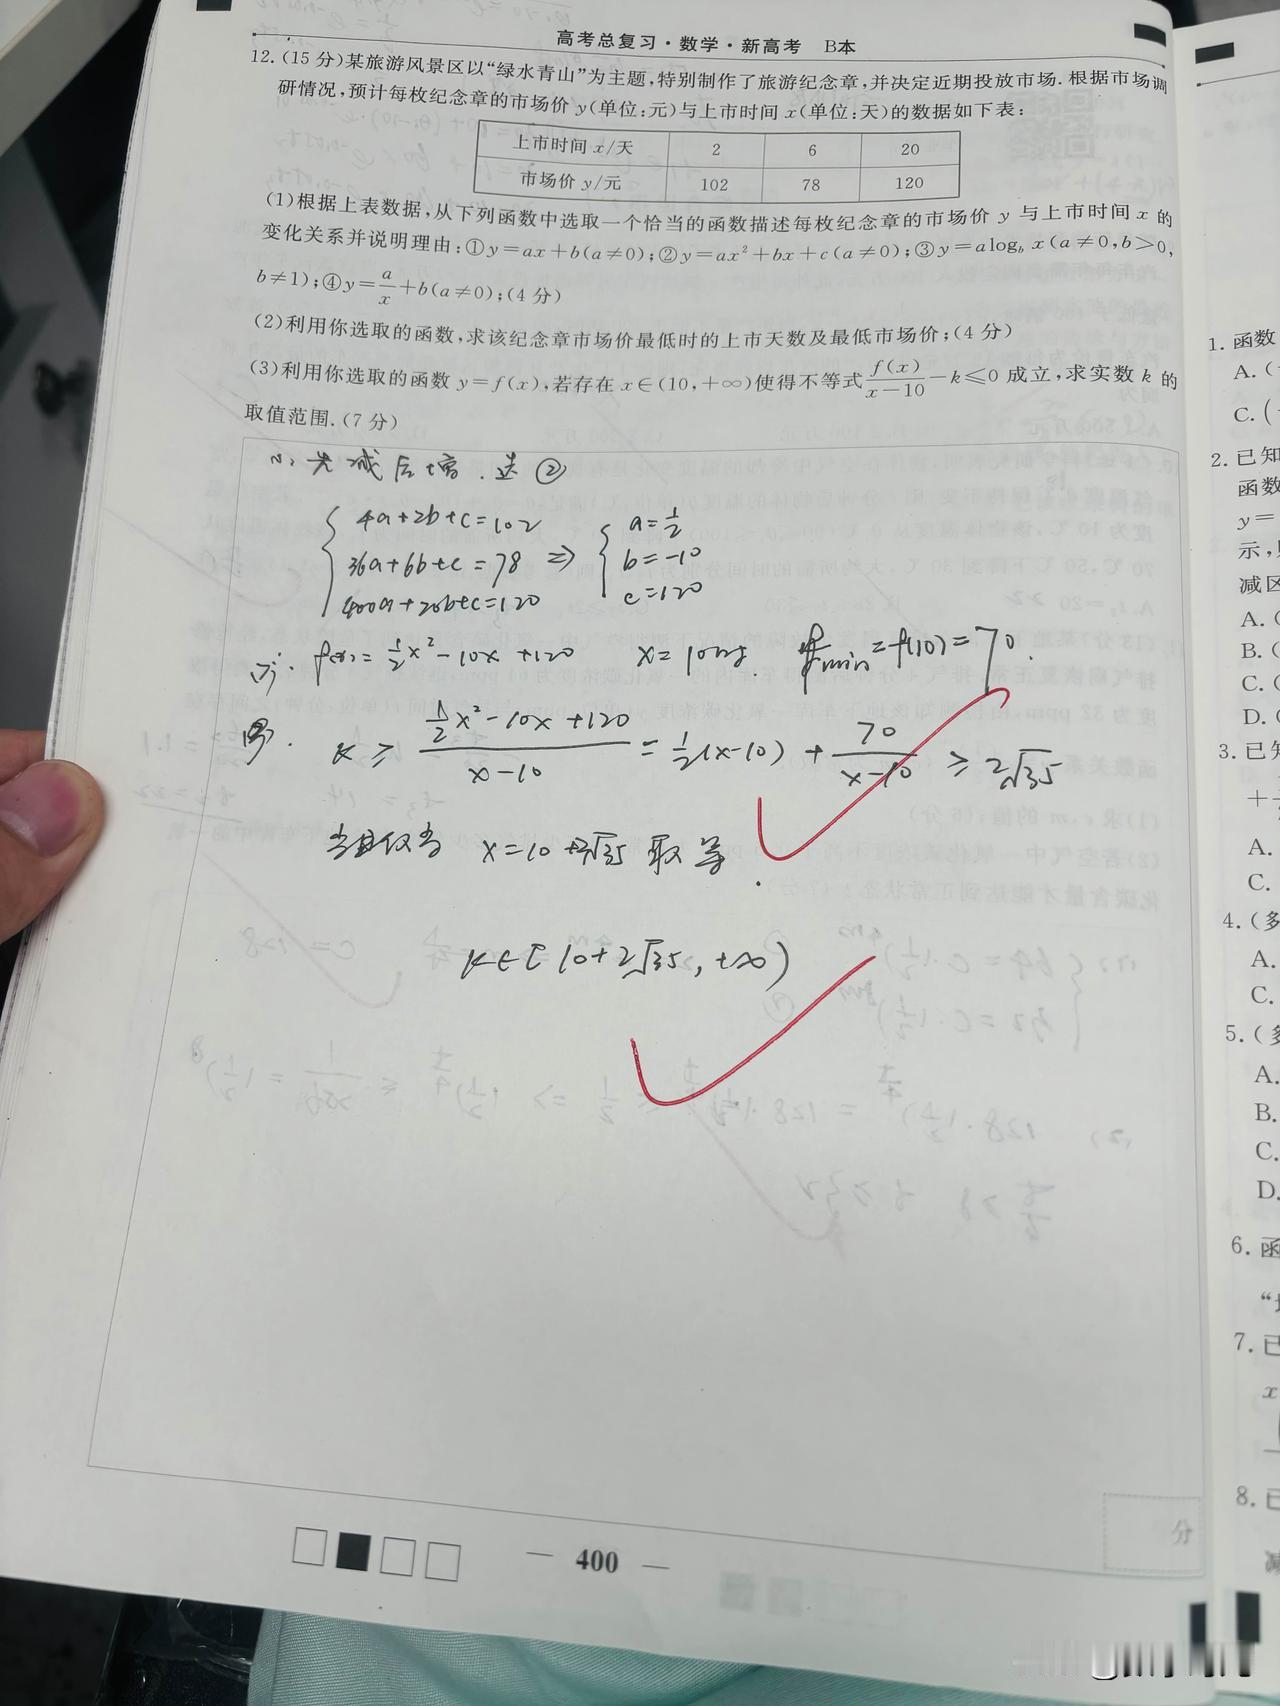 高考总复习·数学·新高考 B本
12.(15分)某旅游风景区以“绿水青山”为主题,特别制作了旅游纪念章,并决定近期投放市场.根据市场调
研情况,预计每枚纪念章的市场价 y(单位:元)与上市时间 x(单位:天)的数据如下表:
上市时间 x/天 2 6 20
市场价 y/元 102 78 120
(1)根据上表数据,从下列函数中选取一个恰当的函数描述每枚纪念章的市场价 y 与上市时间 x 的
变化关系并说明理由:①y=ax+b(a≠0);②y=ax²+bx+c(a≠0);③y=alog_b x(a≠0,b>0,
b≠1);④y=a/x+b(a≠0);(4分)
(2)利用你选取的函数,求该纪念章市场价最低时的上市天数及最低市场价;(4分)
(3)利用你选取的函数 y=f(x),若存在 x∈(10,+∞)使得不等式 f(x)/(x-10) -k≤0 成立,求实数 k 的
取值范围.(7分)
(1) 先减后增.选②
4a+2b+c=102
36a+6b+c=78 ⇒
400a+20b+c=120
a=1/2
b=-10
c=120
f(x)=1/2x²-10x+120 x=10时. min=f(10)=70.
k≥ (1/2x²-10x+120)/(x-10) = 1/2(x-10)+ 70/(x-10) ≥ 2√35
当且仅当 x=10+2√35 取等
k∈[10+2√35,+∞)
分
— 400 —
1. 函数
A.(
C.(
2. 已知
函数
y=
示,
减区
A.(
B.(
C.(
D.(
3. 已知
A.
C.
4.(多
A.
C.
5.(多
A.
B.
C.
D.
6. 函
7. 已
x
8. 已
减